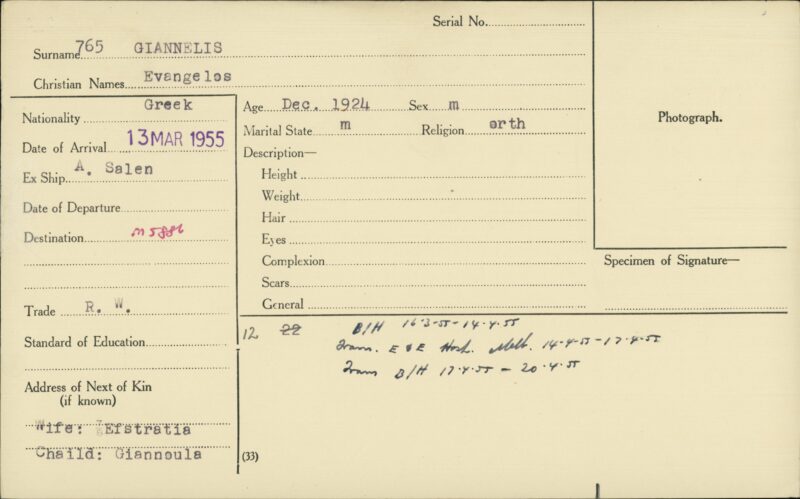 Serial No.
Surname 765 GIANNELIS
Christian Names Evangelos
Nationality Greek
Date of Arrival 13 MAR 1955
Ex Ship A. Salen
Date of Departure
Destination M5886
Trade R. W.
Standard of Education
Address of Next of Kin
(if known)
Wife: Efstratia
Chaild: Giannoula
Age Dec. 1924 Sex m
Marital State m Religion orth
Description—
Height
Weight
Hair
Eyes
Complexion
Scars
General
Photograph.
Specimen of Signature—
12 22 B/H 16-3-55-14-4-55
Trans. E & E Hosp. Melb. 14-4-55-17-4-55
Trans B/H 17-4-55 - 20-4-55
(33)